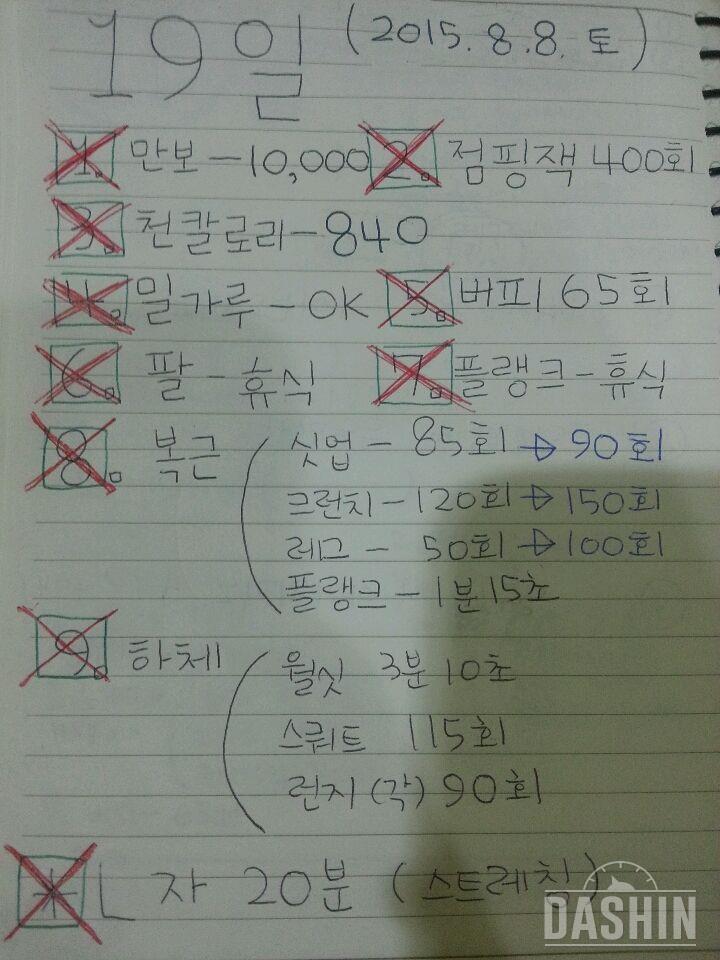 19일 (2015. 8. 8. 토)
1. 만보 - 10,000 2. 점핑잭 400회
3. 천칼로리 - 840
4. 밀가루 - OK 5. 버피 65회
6. 팔 - 휴식 7. 플랭크 - 휴식
8. 복근 ( 싯업 - 85회 → 90회
크런치 - 120회 → 150회
레그 - 50회 → 100회
플랭크 - 1분 15초
9. 하체 ( 월싯 3분 10초
스쿼트 115회
런지 (각) 90회
+ L자 20분 (스트레칭)
DASHIN